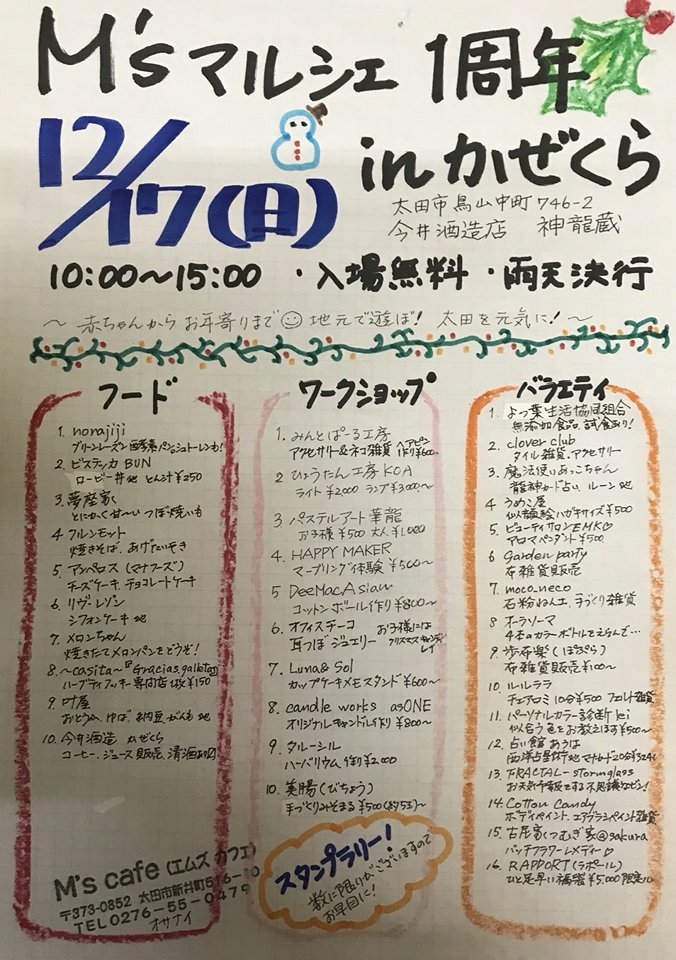 M'sマルシェ 1周年
12/17(日)
inかぜくら
太田市鳥山中町746-2
今井酒造店 神龍蔵
10:00〜15:00 ・入場無料 ・雨天決行
〜赤ちゃんからお年寄りまで 地元で遊ぼ! 太田を元気に!〜
フード
1. norajiji
グリーンレーズン酵素パン シュトーレンも!
2. ビステッカBUN
ロービー丼他 とん汁¥250
3. 夢庵家
とにかく甘〜いつぼ焼いも
4 フルンモット
焼きそば、あげたいそき
5. アンパロス(マナフーズ)
チーズケーキ、チョコレートケーキ
6. リヴ・レゾン
シフォンケーキ他
7. メロンちゃん
焼きたてメロンパンをどうぞ!
8. 〜casita〜『Gracias.galletas』
ハーブティクッキー専門店 1枚¥150
9. 叶屋
おとうふ、ゆば、納豆、がんも他
10. 今井酒造 かぜくら
コーヒー、ジュース販売、清酒あり
M's cafe (エムズ カフェ)
〒373-0852 太田市新井町516-10
TEL 0276-55-0479
オサナイ
ワークショップ
1. みんとぱーる工房
アクセサリー&ネコ雑貨 ヘアピン作り¥600〜
2 ひょうたん工房KOA
ライト¥2,000 ランプ¥3,000〜
3. パステルアート華龍
お子様¥500 大人¥1,000
4. HAPPY MAKER
マーブリング体験 ¥500〜
5 DeeMac.Asian
コットンボール作り¥800〜
6. オフィステーコ お子様には
耳つぼジュエリー クリスマスキャンディレイ
7. Luna& Sol
カップケーキメモスタンド¥600〜
8. candle works asONE
オリジナルキャンドル作り¥800〜
9. タルーシル
ハーバリウム作り¥2,000
10. 美腸(びちょう)
手づくりみそまる¥500(約5コ)〜
スタンプラリー!
数に限りがございますので
お早目に!
バラエティ
1. よつ葉生活協同組合
無添加食品 試食あり!
2. clover club
タイル雑貨・アクセサリー
3. 魔法使いあっこちゃん
龍神カード占い ルーン他
4. うめこ屋
似顔絵ハガキサイズ¥500
5. ビューティサロンEMK♡
アロマペンダント¥500
6 Garden party
布雑貨販売
7. moco_neco
石粉ねん土、手づくり雑貨
8. オーラソーマ
4本のカラーボトルをえらんで…
9. 歩布楽(ぽぷら)
布雑貨¥100〜
10. ルルララ
チェアロミ10分¥500 フェルト雑貨
11. パーソナルカラー診断kei
似合う色をお教えします¥500〜
12. 占い館あうは
西洋占星術他
13. FRACTAL-stormglass
お天気予報をする不思議なビン!
14. Cotton Candy
ボディペイント、エアブラシペイント雑貨
15. 古民家(つむぎ家@sakura
バッチフラワーレメディー♡
16. RAPPORT(ラポール)
ひと足早い福袋¥5,000限定